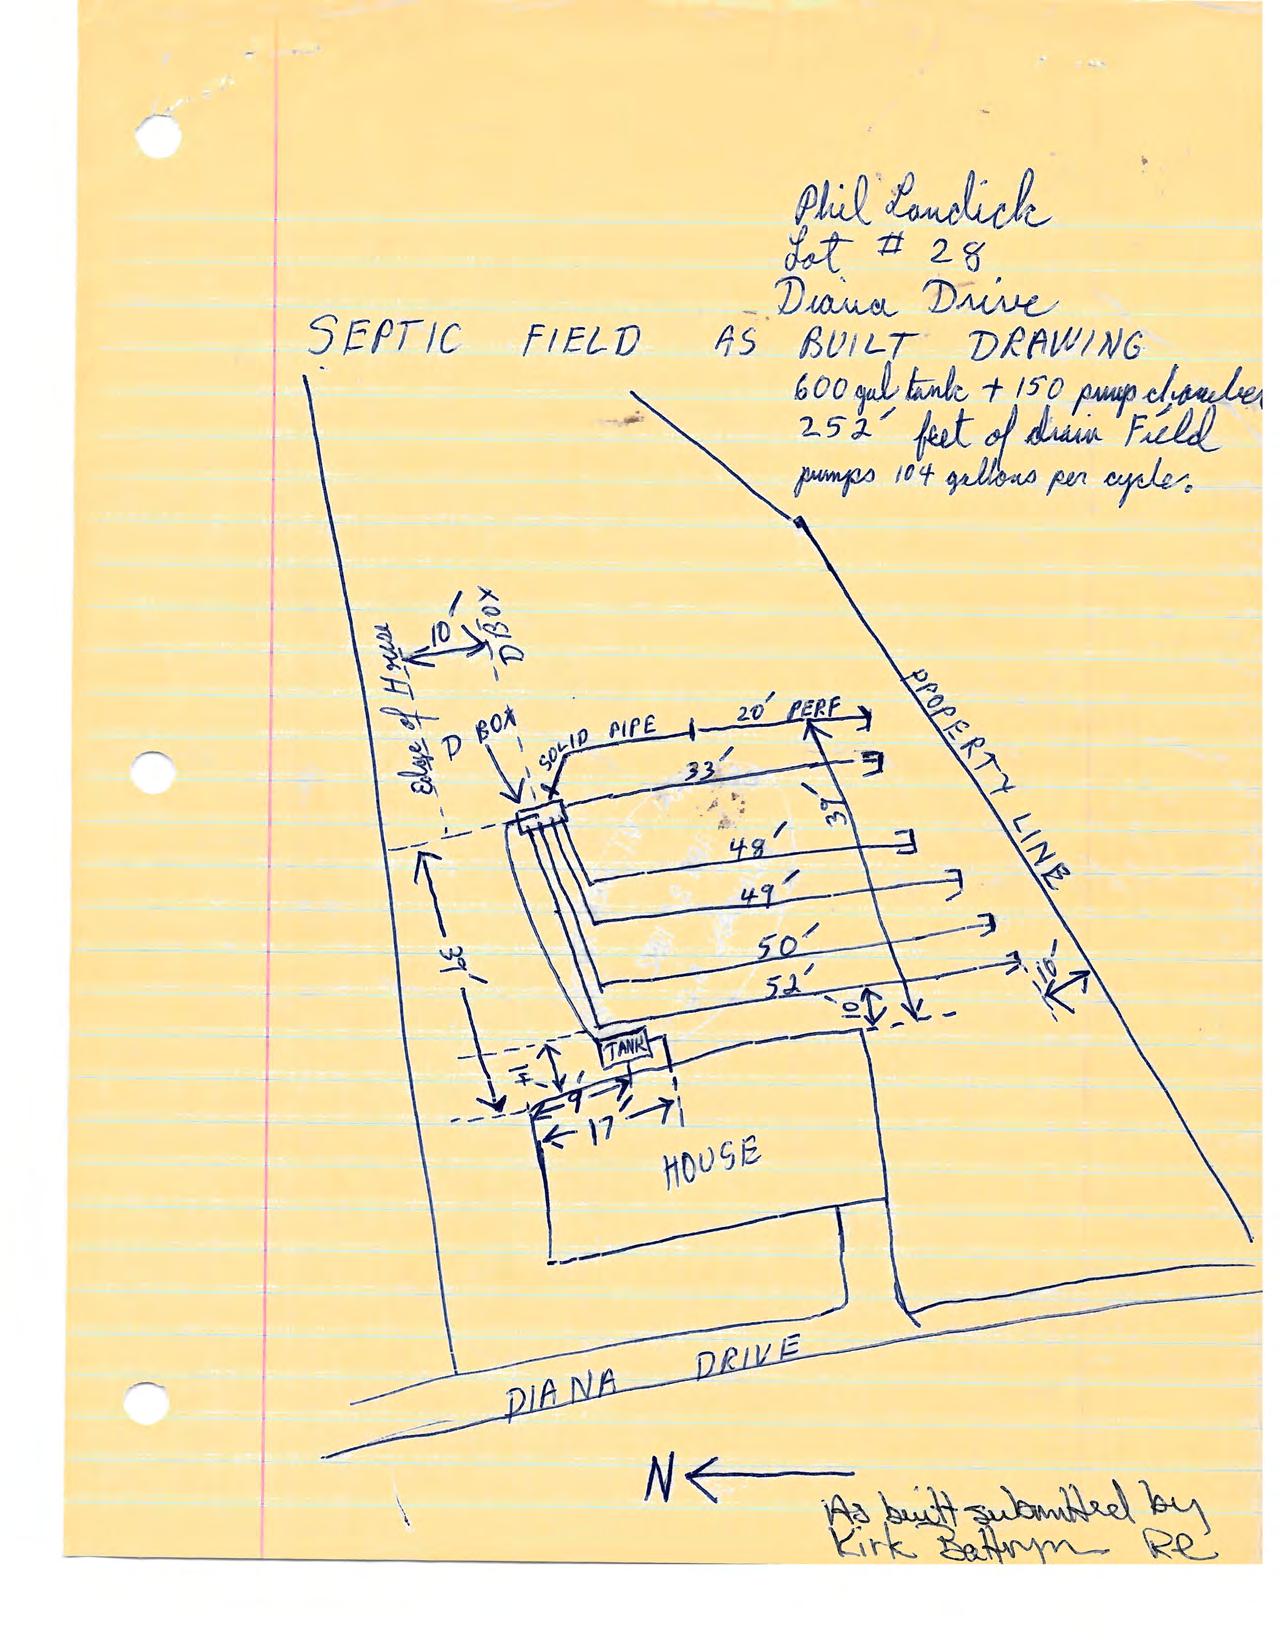 Phil Landick
Lot # 28
Diana Drive
SEPTIC FIELD AS BUILT DRAWING
600 gal tank + 150 pump chamber
252' feet of drain Field
pumps 104 gallons per cycle.
10'
D BOX
Edge of House
D BOX
SOLID PIPE
20' PERF
33'
PROPERTY LINE
39'
48'
49'
50'
52'
10'
10'
TANK
9'
17'
HOUSE
DIANA DRIVE
N
As built submitted by
Kirk